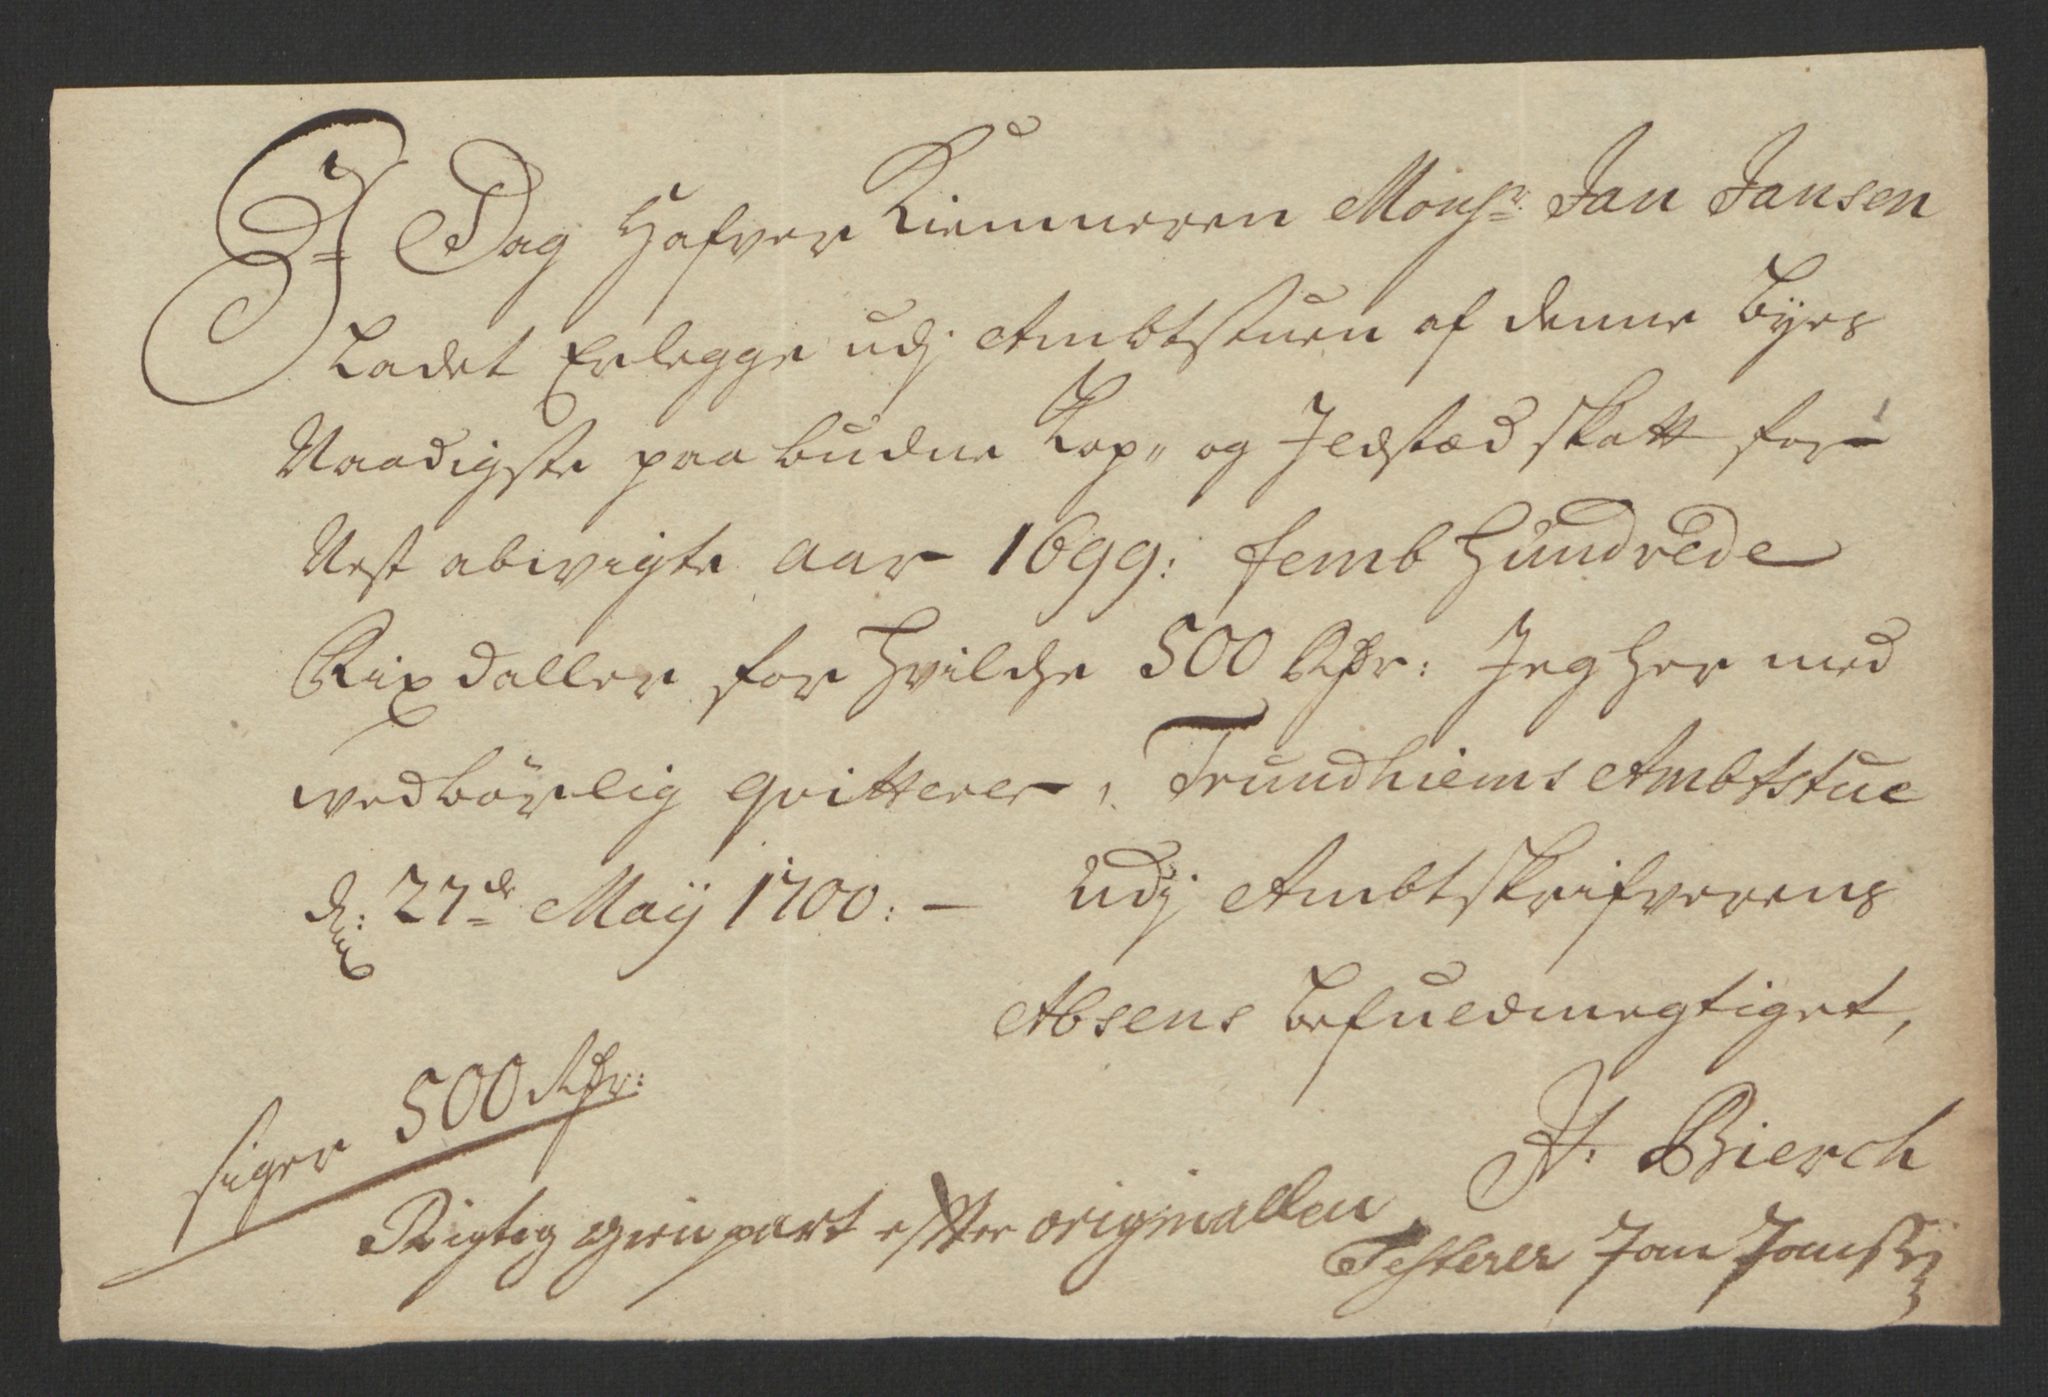 I Dag Hafver Kiemmeren Monsr: Jan Jansen
Ladet Erlegge udj Ambtstuen af denne Byes
Naadigste paa budne Kop,, og Jldstæd skatt for
Nest abvigte aar 1699: femb Hundrede
Rixdaller for Hvilche 500 Rdr: Jeg her med
vedbörlig qvitterer, Trundhiems Ambtstue
d: 27de Maij 1700:— Udj Ambtskrifverens
Absens befuldmegtiget,
siger 500 Rdr:
Bierch
Rigtig gienpart efter originallen
Testerer Jan Jansen